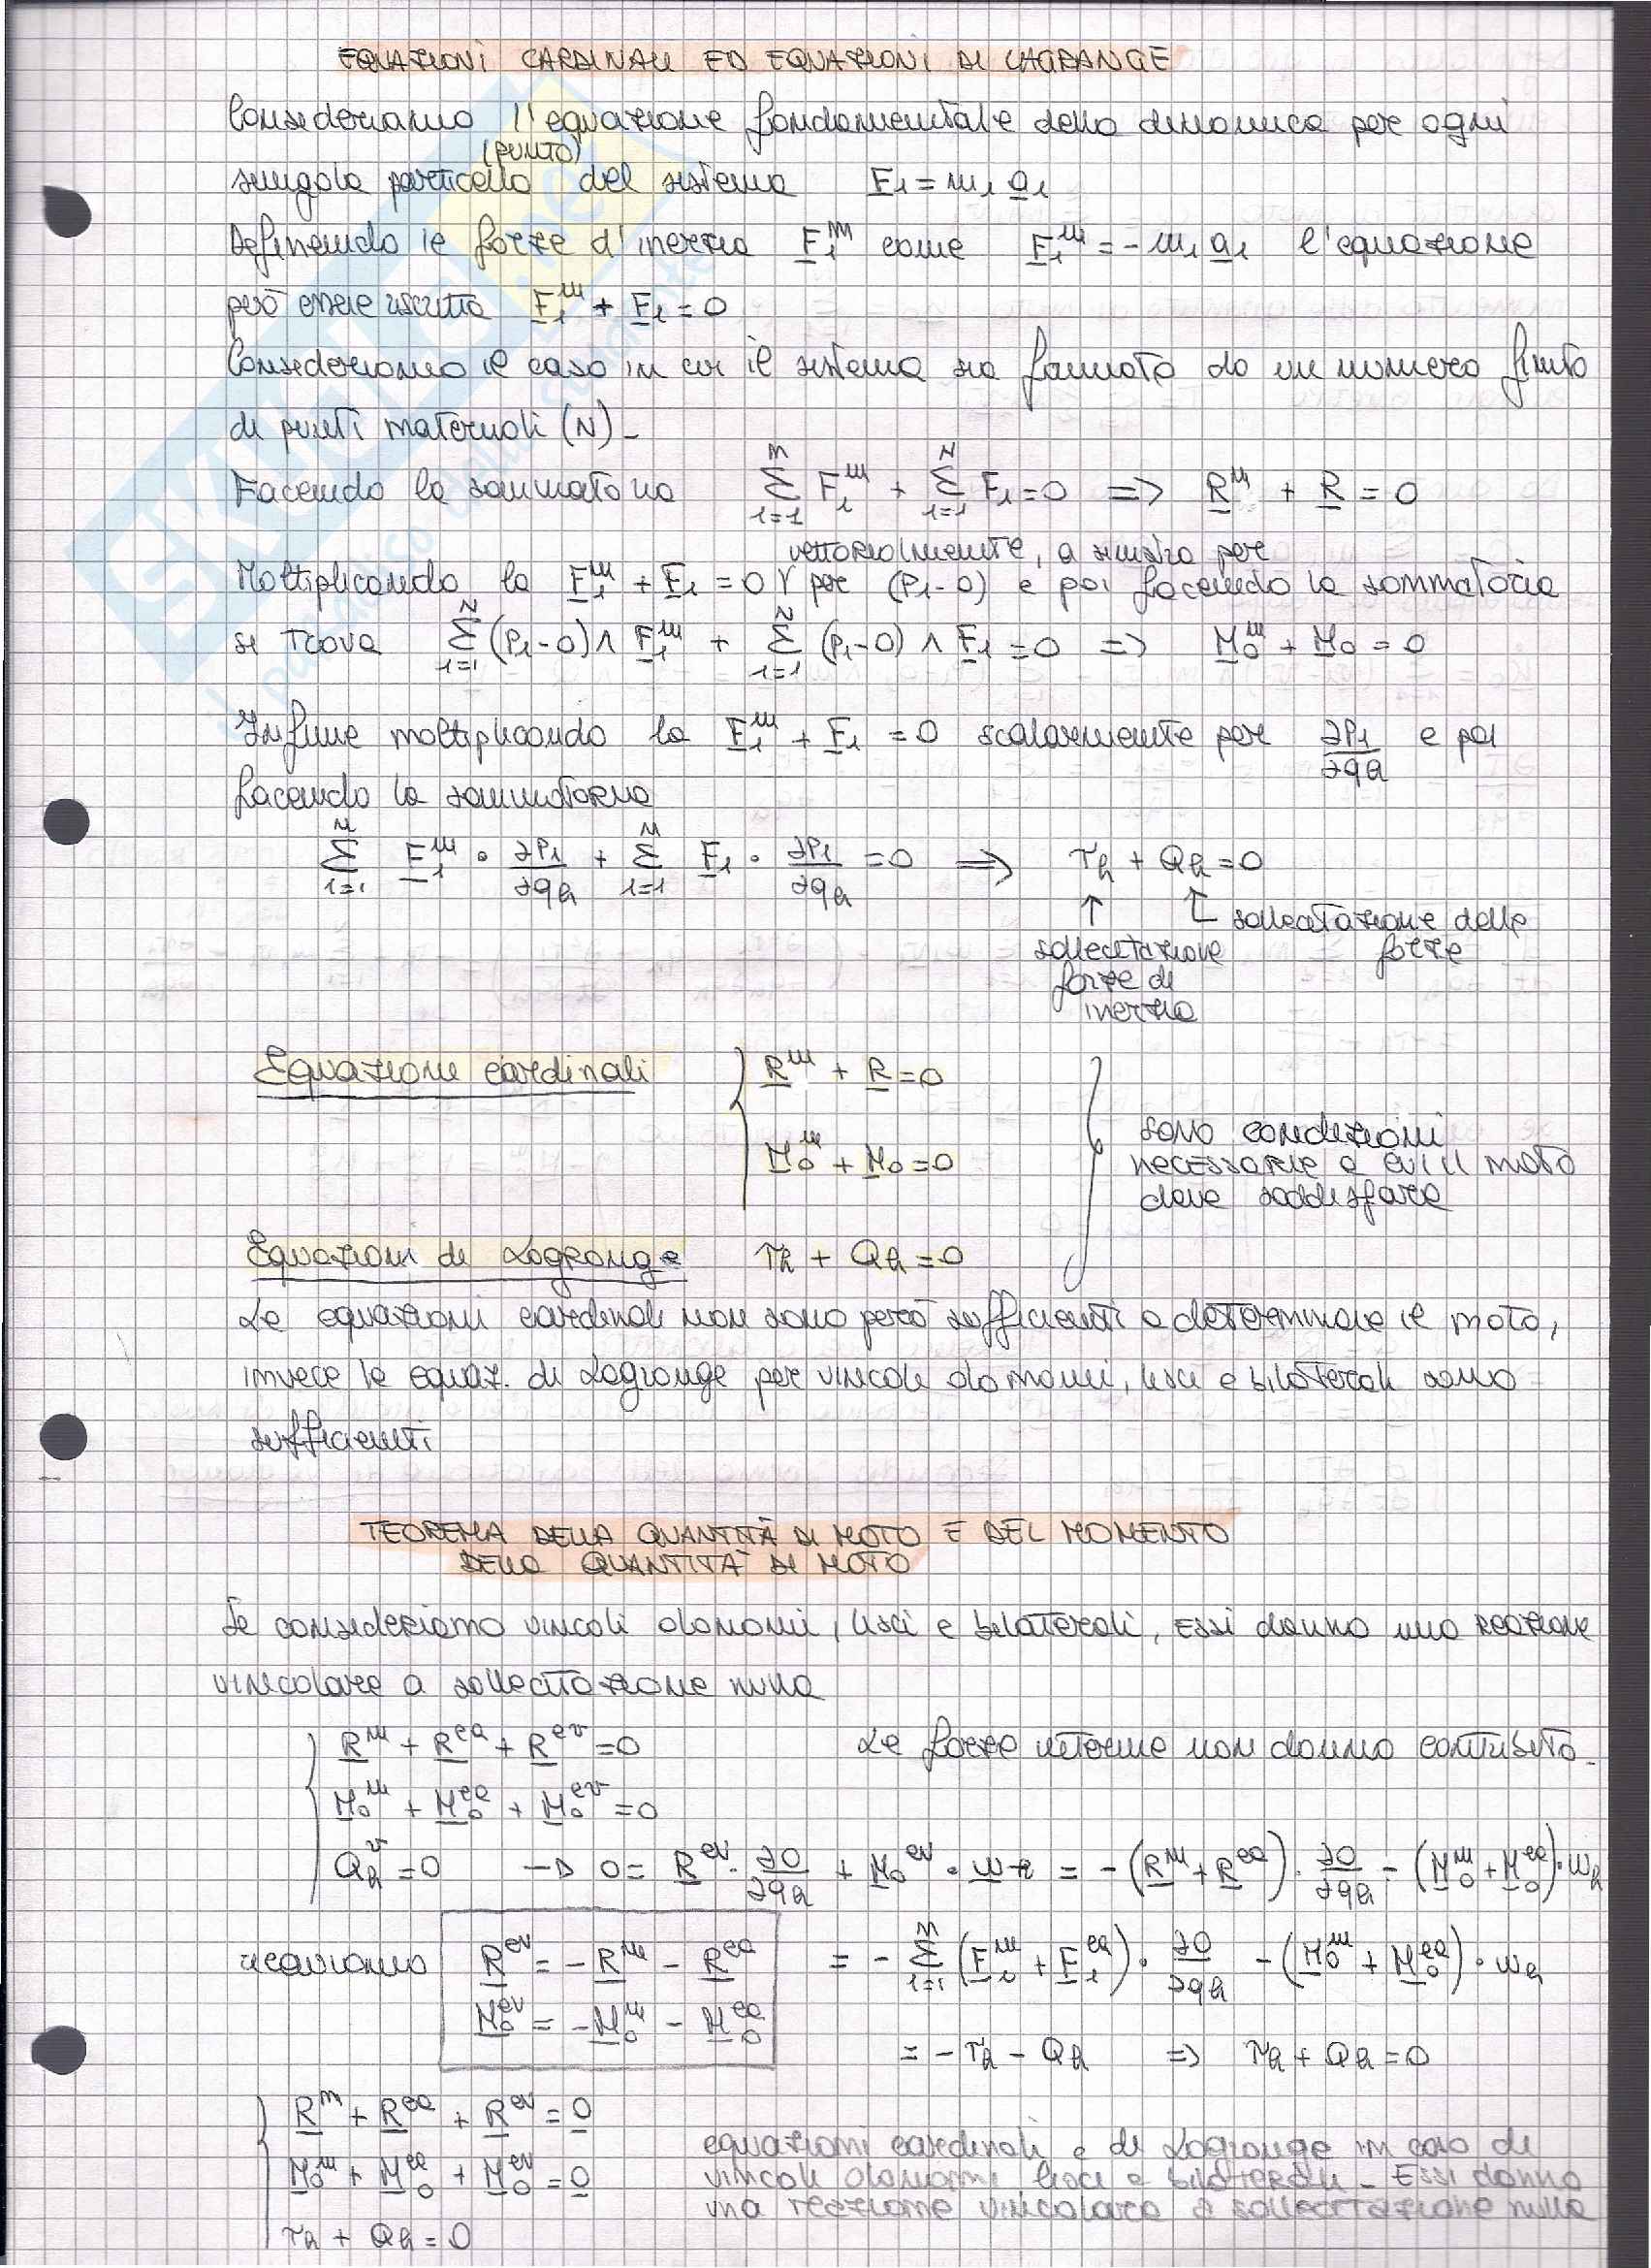 EQUAZIONI CARDINALI ED EQUAZIONI DI LAGRANGE
Consideriamo l'equazione fondamentale della dinamica per ogni
(PUNTO)
singola particella del sistema F_i = m_i a_i
Definendo le forze d'inerzia F_i^in come F_i^in = - m_i a_i l'equazione
può essere riscritta F_i^in + F_i = 0
Consideriamo il caso in cui il sistema sia formato da un numero finito
di punti materiali (N)-
Facendo la sommatoria Σ_{i=1}^{N} F_i^in + Σ_{i=1}^{N} F_i = 0 => R^in + R = 0
vettorialmente, a sinistra per
Moltiplicando la F_i^in + F_i = 0 γ per (P_i-O) e poi facendo la sommatoria
si trova Σ_{i=1}^{N} (P_i-O) ∧ F_i^in + Σ_{i=1}^{N} (P_i-O) ∧ F_i = 0 => M_O^in + M_O = 0
Infine moltiplicando la F_i^in + F_i = 0 scalarmente per ∂P_i/∂q_h e poi
facendo la sommatoria
Σ_{i=1}^{N} F_i^in · ∂P_i/∂q_h + Σ_{i=1}^{N} F_i · ∂P_i/∂q_h = 0 => τ_h + Q_h = 0
↑ ↑ sollecitazione delle
sollecitazione forze
forze di
inerzia
Equazione cardinali { R^in + R = 0
M_O^in + M_O = 0
sono condizioni
necessarie a cui il moto
deve soddisfare
Equazioni di Lagrange τ_h + Q_h = 0
Le equazioni cardinali non sono però sufficienti a determinare il moto,
invece le equaz. di Lagrange per vincoli olonomi, lisci e bilaterali sono
sufficienti
TEOREMA DELLA QUANTITÀ DI MOTO E DEL MOMENTO
DELLA QUANTITÀ DI MOTO
Se consideriamo vincoli olonomi, lisci e bilaterali, essi danno una reazione
vincolare a sollecitazione nulla
R^in + R^ea + R^ev = 0 Le forze interne non danno contributo-
M_O^in + M_O^ea + M_O^ev = 0
Q_h^v = 0 -> 0 = R^ev · ∂O/∂q_h + M_O^ev · w_h = -(R^in + R^ea) · ∂O/∂q_h - (M_O^in + M_O^ea) · w_h
ricaviamo R^ev = -R^in - R^ea = - Σ_{i=1}^{N} (F_i^in + F_i^ea) · ∂O/∂q_h - (M_O^in + M_O^ea) · w_h
M_O^ev = -M_O^in - M_O^ea
= - τ_h - Q_h => τ_h + Q_h = 0
R^in + R^ea + R^ev = 0
M_O^in + M_O^ea + M_O^ev = 0
τ_h + Q_h = 0
equazioni cardinali e di Lagrange in caso di
vincoli olonomi lisci e bilaterali - Essi danno
una reazione vincolare a sollecitazione nulla